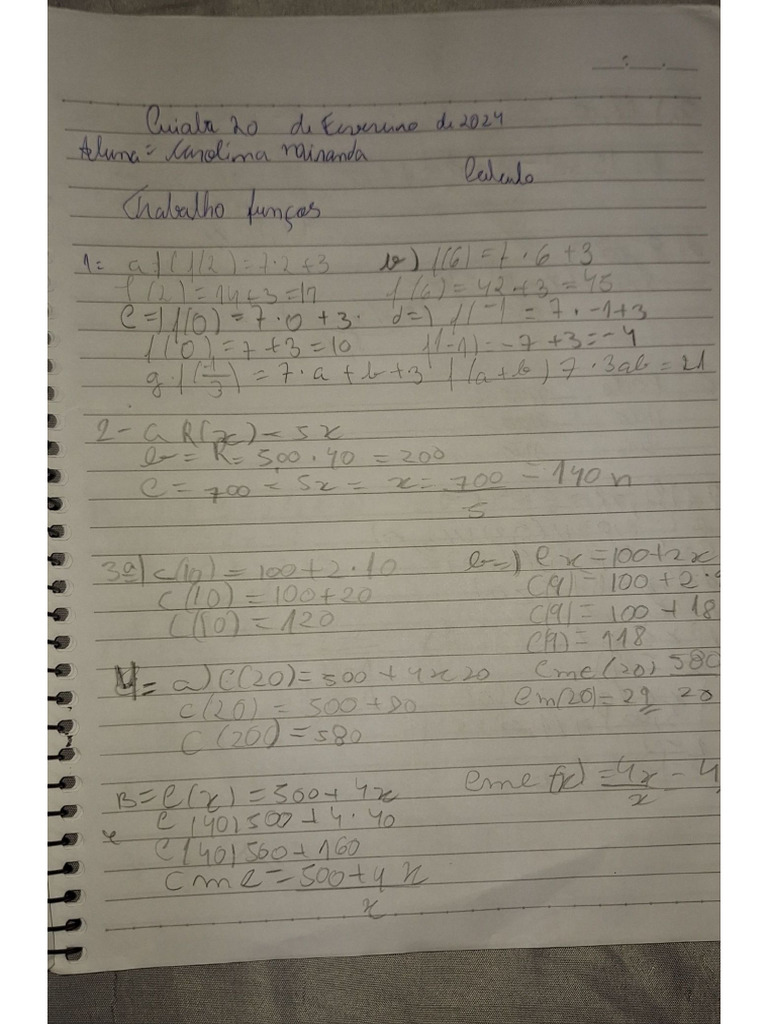 Cuiaba 20 de Fevereiro de 2024
Aluna = Carolima Miranda
Calculo
Trabalho funções
1= a) f(2) = 7·2+3 b) f(6) = 7·6+3
f(2) = 14+3 = 17 f(6) = 42+3 = 45
C=) f(0) = 7·0+3· d=) f(-1 = 7·-1+3
f(0) = 7+3 = 10 f(-1) = -7+3 = -4
g·f(-1/3) = 7·a+b+3 f(a+b) 7·3ab = 21
2- a R(x) = 5x
b = R = 500·40 = 200
C = 700 = 5x = x = 700/5 = 140 n
3a) C(10) = 100+2·10 b=) Cx = 100+2x
C(10) = 100+20 C(9) = 100+2·9
C(10) = 120 C(9) = 100+18
C(9) = 118
4= a) C(20) = 500+4x20 Cme(20) 580
C(20) = 500+80 Cm(20) = 29 20
C(20) = 580
B = C(x) = 500+4x Cme f(x) = 4x/x = 4
C(40) 500+4·40
C(40) 500+160
Cme = 500+4x/x